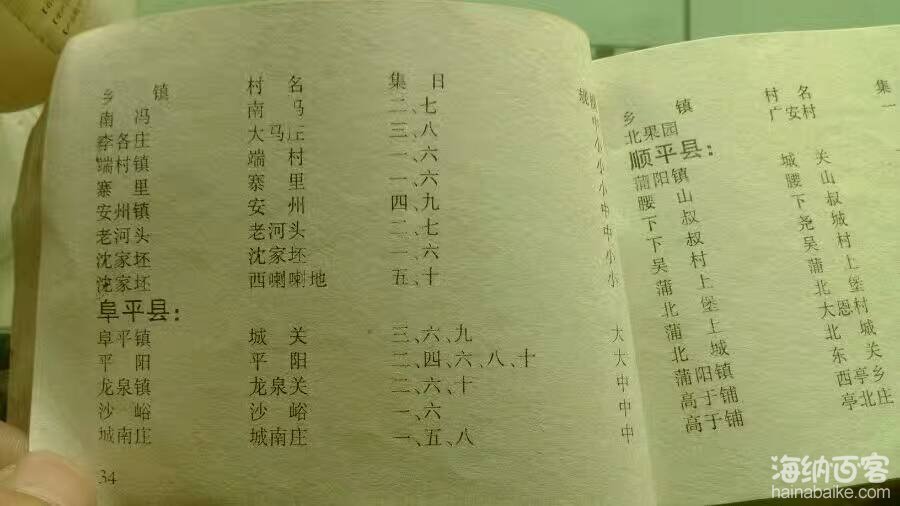 乡 镇 村 名 集 日 规模
南 冯 南 马 二、七 小
李各庄 大马庄 三、八 小
端村镇 端 村 一、六 小
寨 里 寨 里 一、六 小
安州镇 安 州 四、九 中
老河头 老河头 二、七 中
沈家坯 沈家坯 一、六 小
沈家坯 西喇喇地 五、十 小
阜平县：
阜平镇 城 关 三、六、九 大
平 阳 平 阳 二、四、六、八、十 大
龙泉镇 龙泉关 二、六、十 中
沙 峪 沙 峪 一、六 中
城南庄 城南庄 一、五、八 中
34
乡 镇 村 名 集
北果园 广安村 一
顺平县：
蒲阳镇 城 关
腰 山 腰 山
下 叔 下 叔
下 叔 尧 城
吴 村 吴 村
蒲 上 蒲 上
北 堡 北 堡
蒲 上 大恩村
北 城 北 城
蒲阳镇 东 关
高于铺 西亭乡
高于铺 亭北庄
海纳百客
hainabaike.com